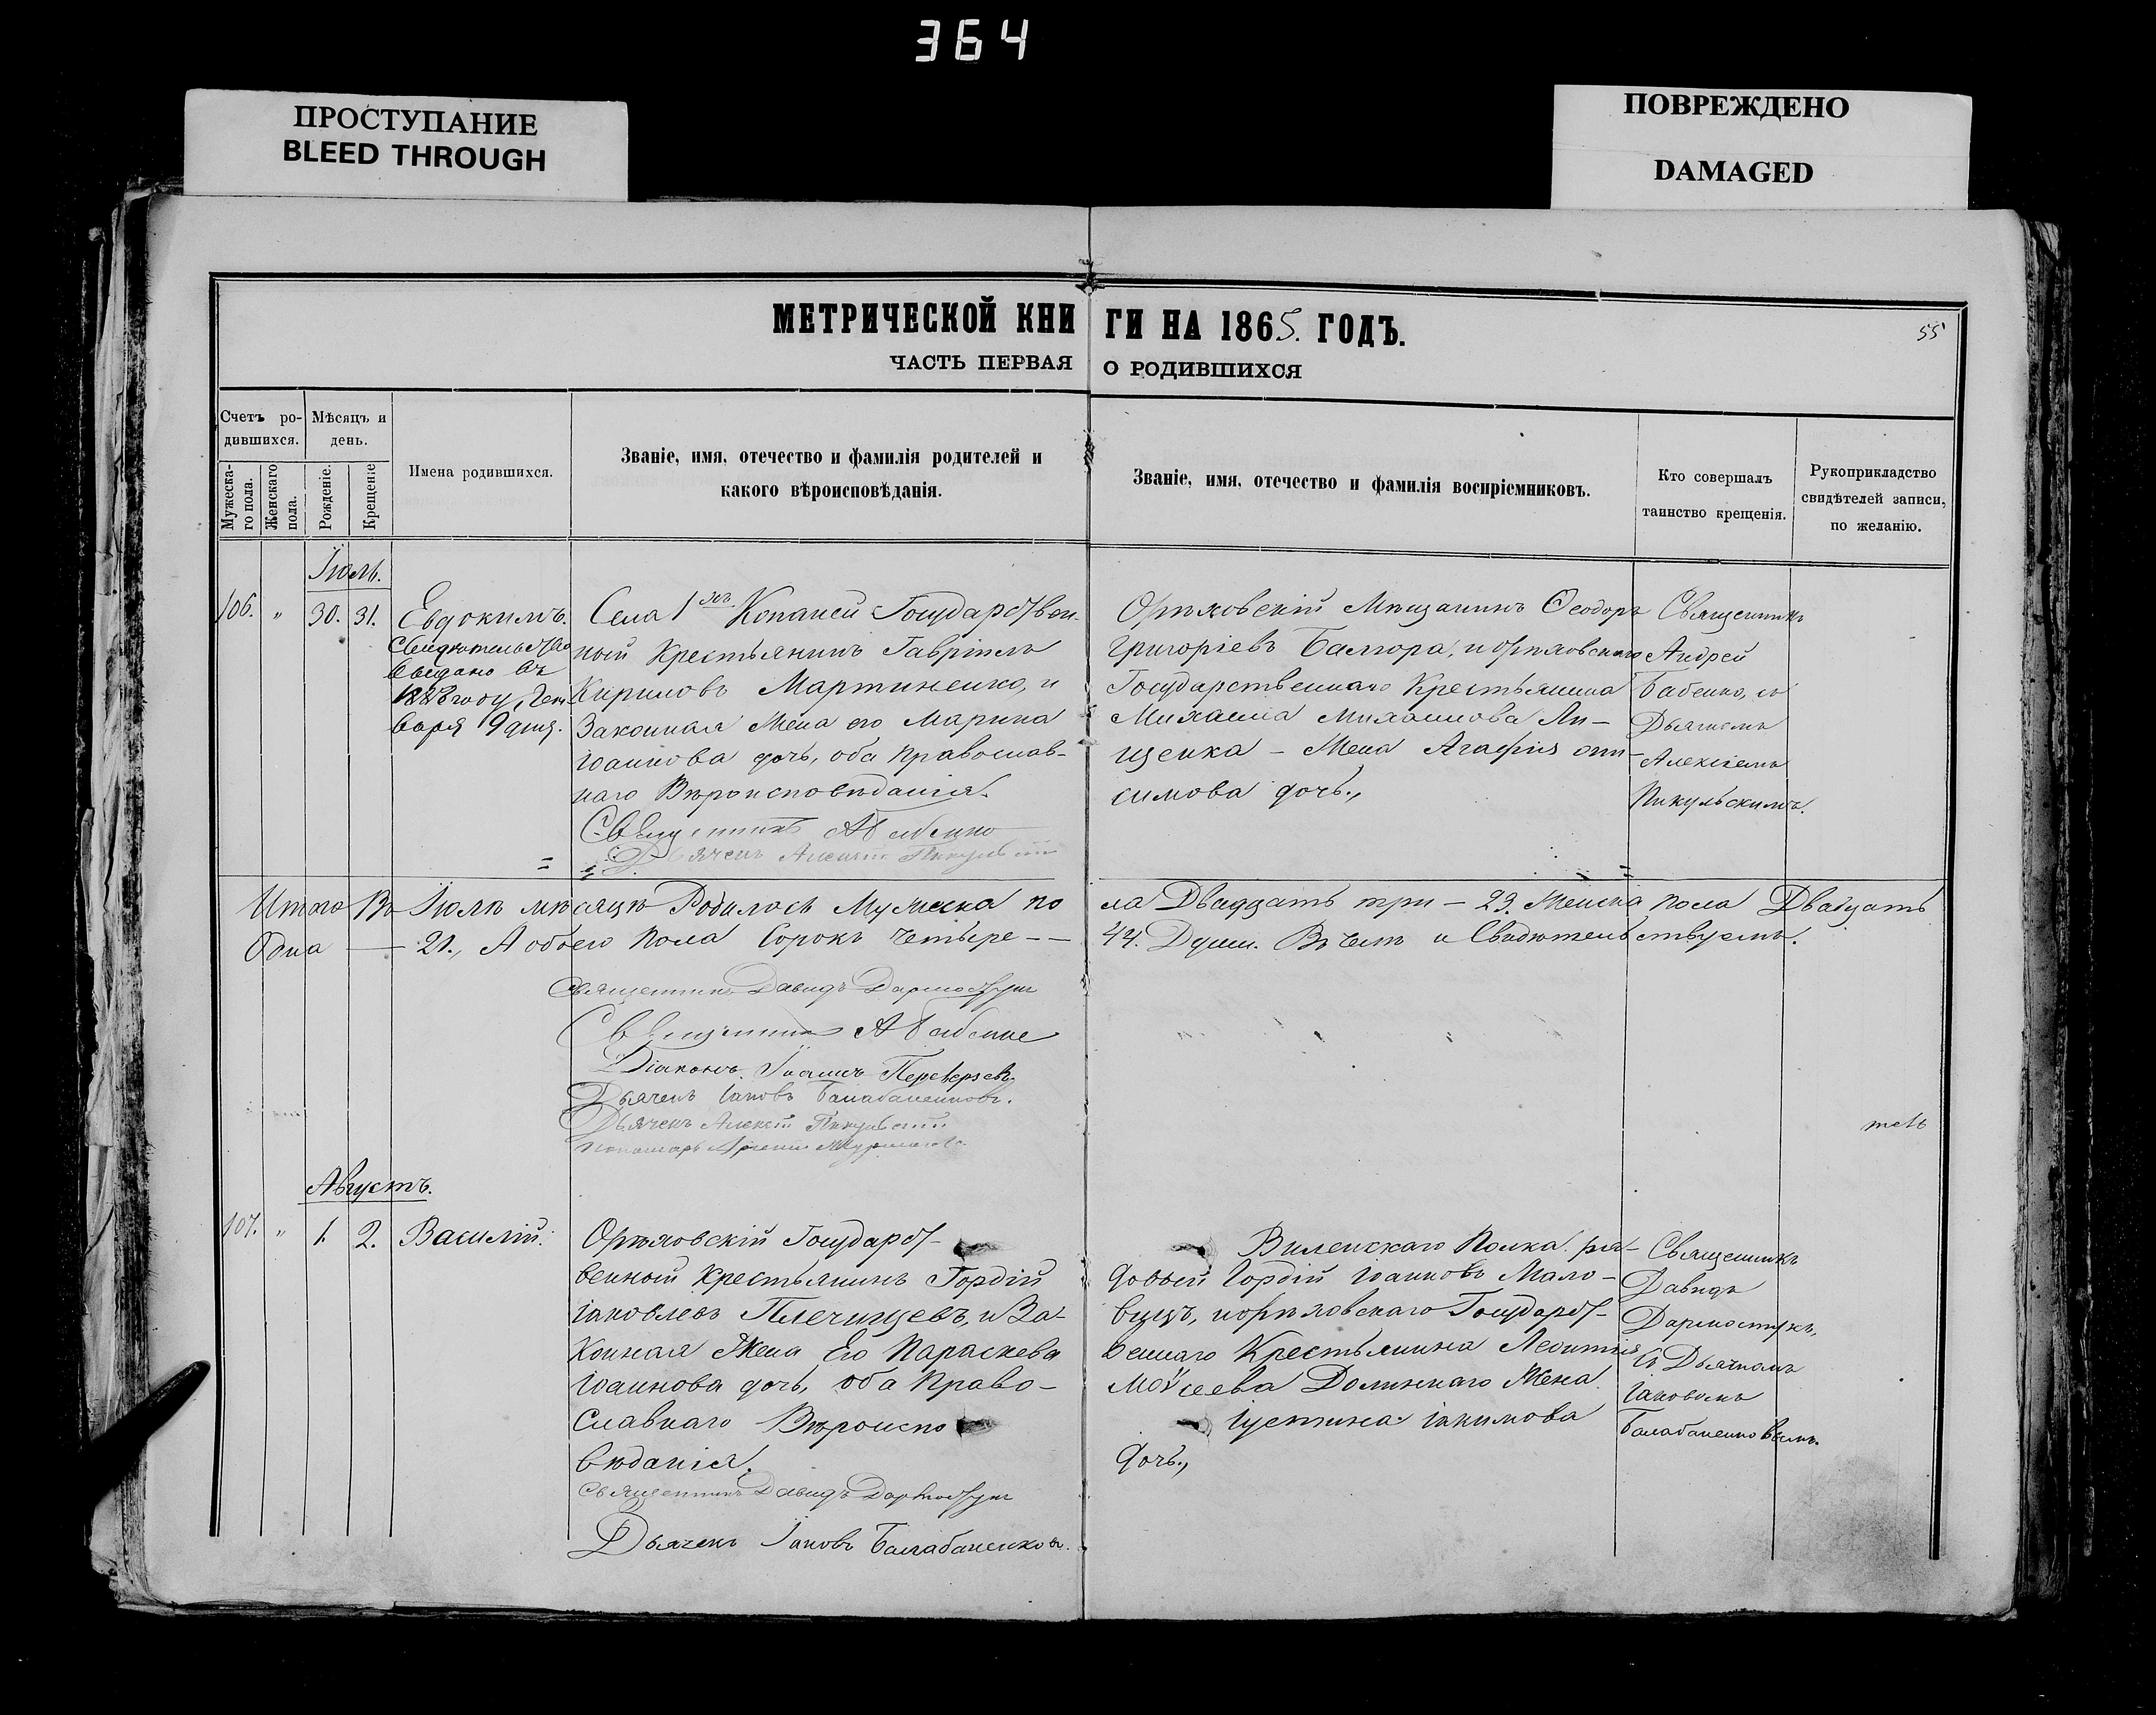 364
ПРОСТУПАНИЕ
BLEED THROUGH
ПОВРЕЖДЕНО
DAMAGED
МЕТРИЧЕСКОЙ КНИ ГИ НА 1865. ГОДЪ.
55
ЧАСТЬ ПЕРВАЯ О РОДИВШИХСЯ
Счетъ ро-
дившихся.
Мужеска-
го пола.
Женскаго
пола.
Мѣсяцъ и
день.
Рожденіе.
Крещеніе
Имена родившихся.
Званіе, имя, отечество и фамилія родителей и
какого вѣроисповѣданія.
Званіе, имя, отечество и фамилія воспріемниковъ.
Кто совершалъ
таинство крещенія.
Рукоприкладство
свидѣтелей записи,
по желанію.
Іюль.
106. " 30. 31.
Евдокимъ.
Свидѣтельство
выдано въ
году, Ген
варя 9 дня.
Села 1й Копаней Государствен-
ный Крестьянинъ Гавріилъ
Кириловъ Мартиненко, и
Законная Жена его Марина
Іоаннова дочь, оба Православ-
наго Вѣроисповѣданія.
Священникъ А Бабенко
Дьячекъ Алексій Пикульскій
Орѣховскій Мѣщанинъ Ѳеодоръ
Григоріевъ Балюра, и орѣховскаго
Государственнаго Крестьянина
Михаила Михаилова Ли-
щенка – Жена Агафія они-
симова дочь.,
Священникъ
Андрей
Бабенко, съ
Дьячкомъ
Алексіемъ
Пикульскимъ.
Итого Въ Іюлѣ мѣсяцѣ Родилось Мужеска по ла Двадцать три – 23. Женска пола Двадцать
Одна – 21., А обоего пола Сорокъ четыре – – 44. Души. Въ чемъ и Свидѣтельствуемъ.
Священникъ Давидъ Дармостукъ
Священникъ А Бабенко
Діаконъ Іоаннъ Переверзевъ
Дьячекъ Іаковъ Балабаненковъ.
Дьячекъ Алексій Пикульскій
Пономарь
Августъ.
107. " 1. 2.
Василій.
Орѣховскій Государст-
венный Крестьянинъ Гордій
Іаковлевъ Плечищевъ, и За-
конная Жена Его Параскева
Іоаннова дочь, оба Право-
славнаго Вѣроиспо
вѣданія.
Священникъ Давидъ Дармостукъ
Дьячекъ Іаковъ Балабаненковъ.
Виленскаго Полка ря-
довый Гордій Іоанновъ Мало-
вицъ, и орѣховскаго Государст-
веннаго Крестьянина Леонтія
Моѵсеева Долиннаго Жена
Іустина Іакимова
дочь.,
Священникъ
Давидъ
Дармостукъ,
съ Дьячкомъ
Іаковомъ
Балабаненковымъ.